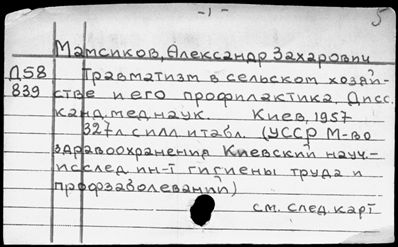 -1-
5
Мамсиков, Александр Захарович
Д58 Травматизм в сельском хозяй-
839 стве и его профилактика. Дисс.
канд. мед наук. Киев, 1957
327л с илл и табл. (УССР М-во
здравоохранения Киевский науч.-
исслед ин-т гигиены труда и
профзаболеваний)
см. след. карт